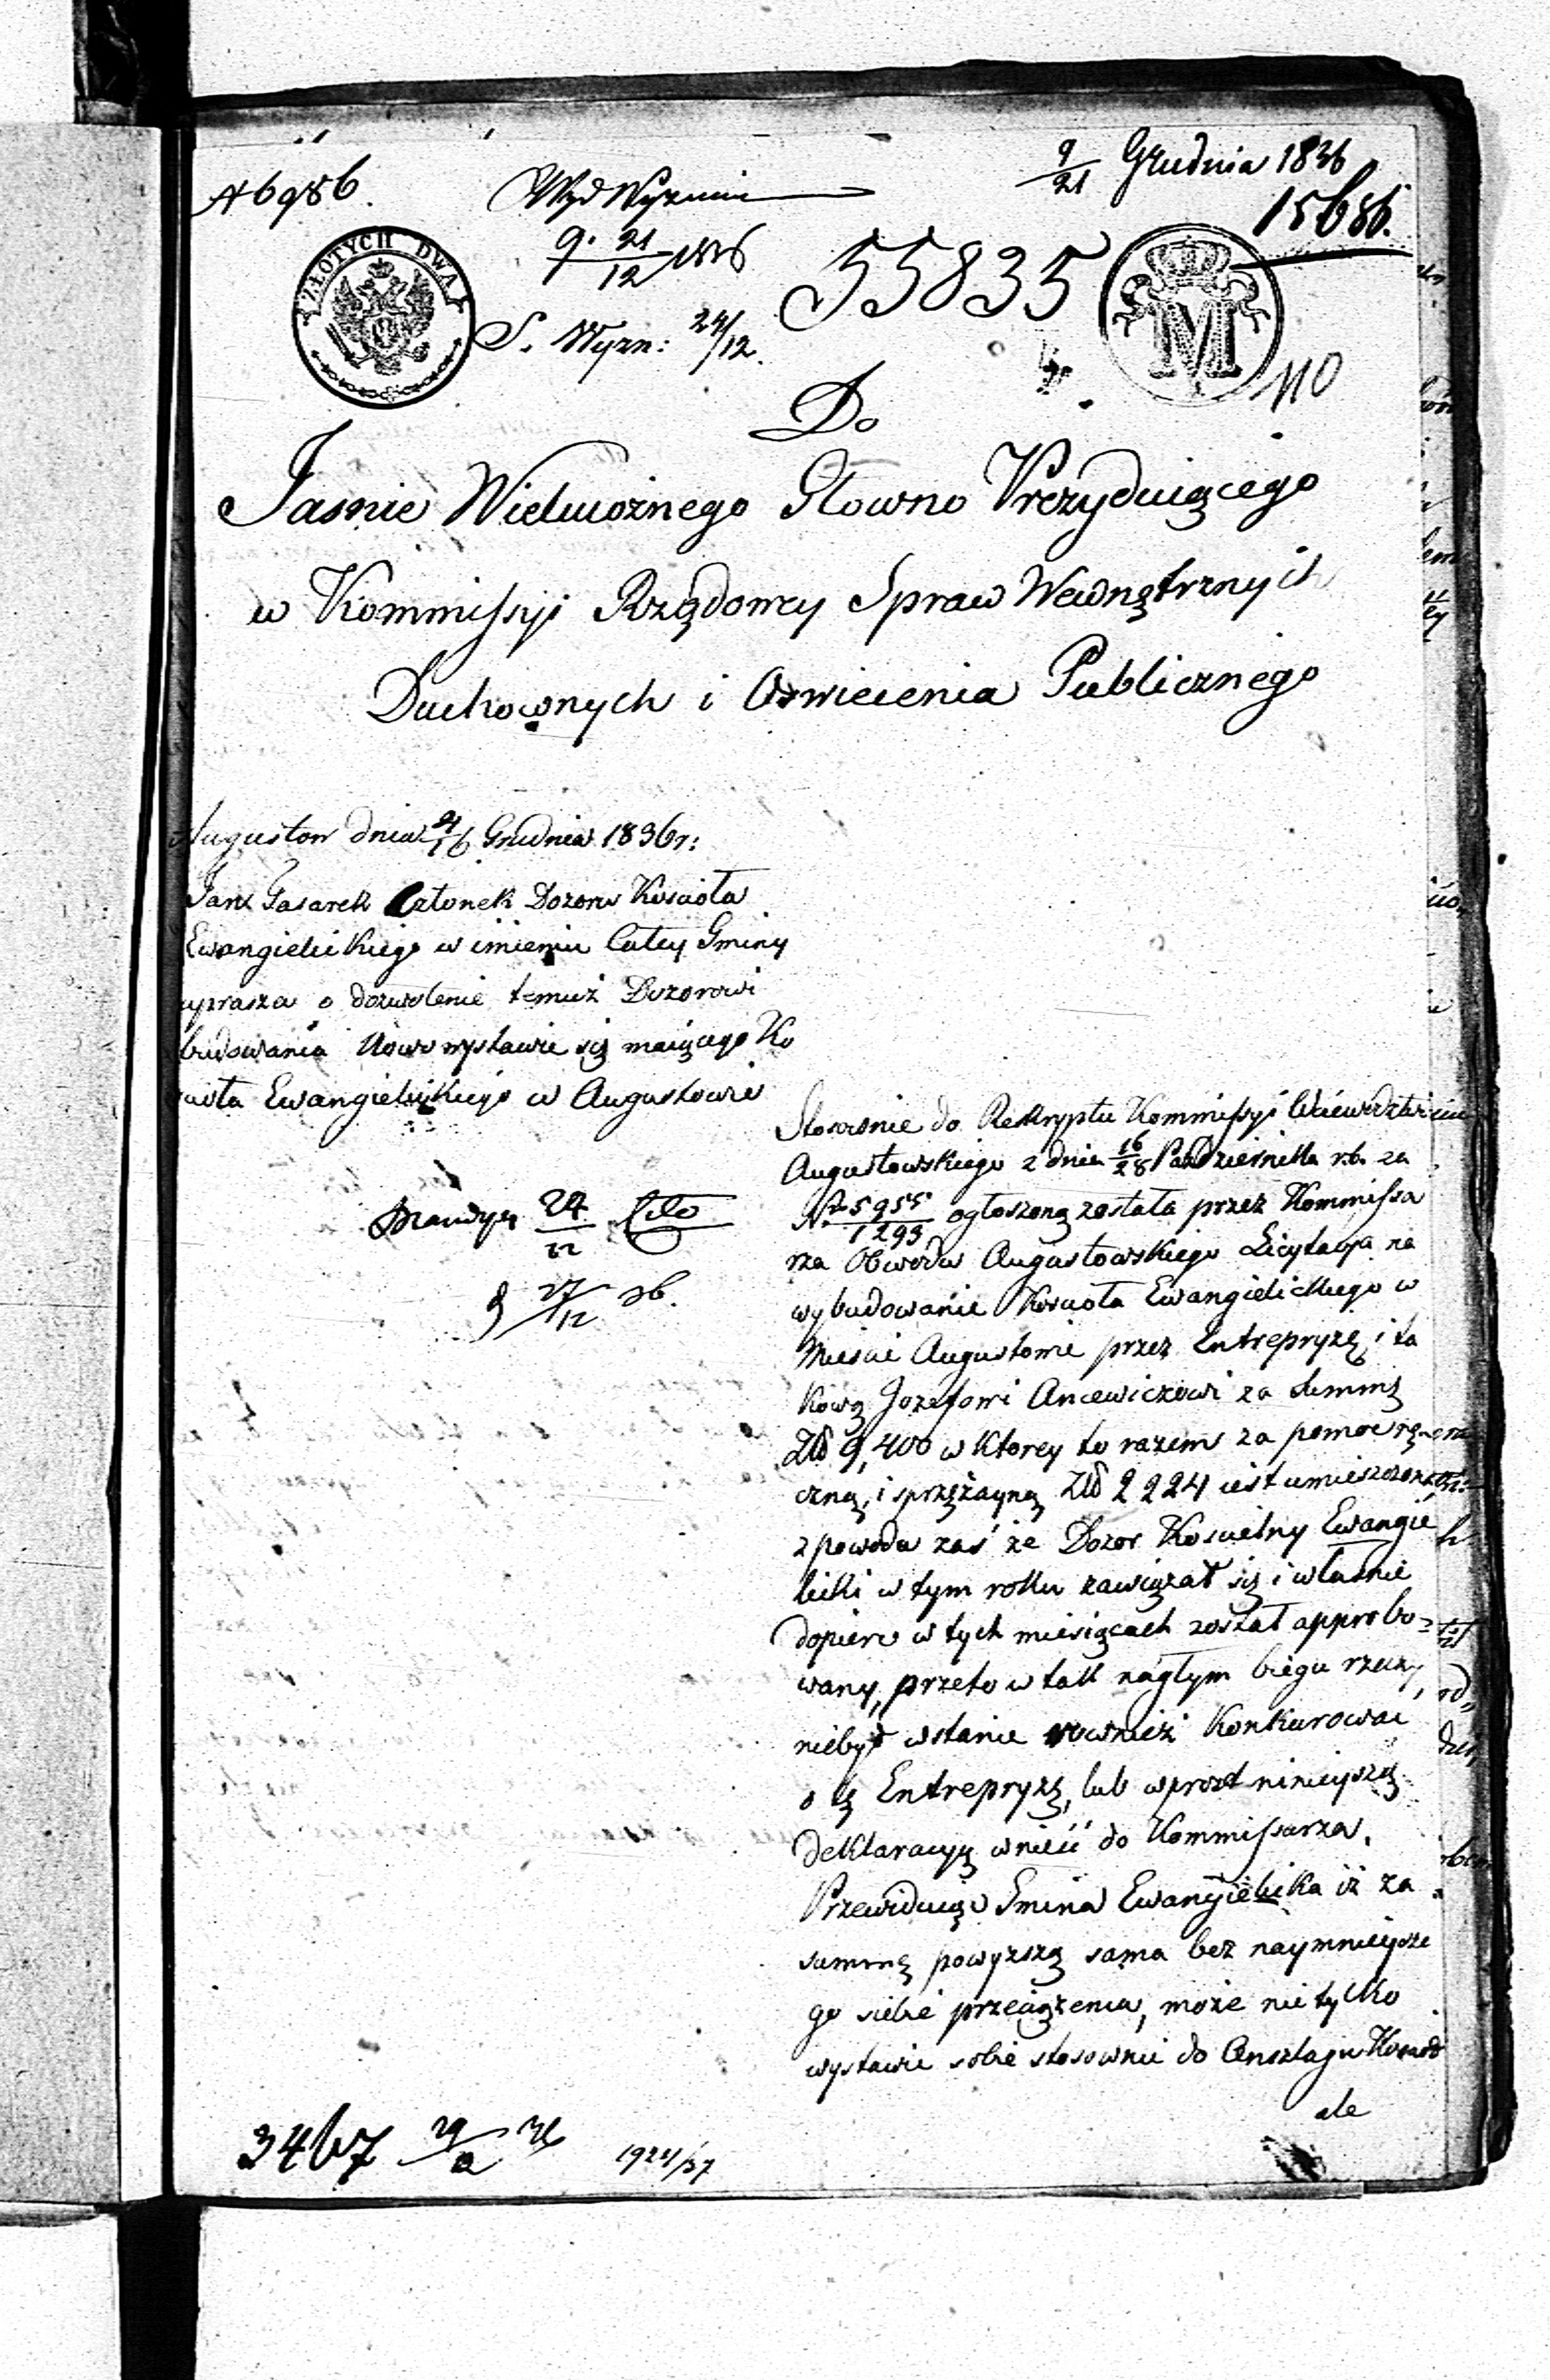 9/21 Grudnia 1836
15686.
N 6986.
Wyd Wyznań
9. 21/12 1836
55835
ZŁOTYCH DWA
M
S. Wyzn: 24/12.
110
Do
Jasnie Wielmożnego Głowno Prezyduiącego
w Kommissyi Rządowey Spraw Wewnętrznych
Duchownych i Oswiecenia Publicznego
Augustow dnia 4/16 Grudnia 1836 r:
Jan Gasarek Członek Dozoru Kościoła
Ewangielickiego w imieniu Całey Gminy
uprasza o dozwolenie temuż Dozorowi
budowania Nowo wystawić się maiącego Ko
scioła Ewangielickiego w Augustowie
24/12 Cito
27/12 36.
Stosownie do Reskryptu Kommissyi Woiewodztwa
Augustowskiego z dnia 16/28 Pazdziernika r.b. za
N 5955/1293 ogłoszoną została przez Kommissa
rza Obwodu Augustowskiego Licytacya na
wybudowanie Kościoła Ewangielickiego w
Mieście Augustowie przez Entrepryzę, i ta
kową Jozefowi Ancewiczowi za summę
Złp 9,400 w Ktorey to razem za pomoc rę
czną, i sprzężayną Złp 2224 iest umieszczone
z powodu zaś że Dozor Koscielny Ewangie
licki w tym roku zawiązał się i własnie
dopiero w tych miesiącach został approbo
wany, przeto w tak nagłym biegu rzeczy,
niebył wstanie rownież Konkurować
o tę Entrepryzę, lub wprost ninieyszą
deklaracyą wnieść do Kommissarza.
Przewiduiąc Gmina Ewangielicka iż za
summę powyższą sama bez naymnieysze
go siebie przeciążenia, może nie tylko
wystawić sobie stosownie do Anszlagu Kościoł
ale
3467 29/12 36
1924/37